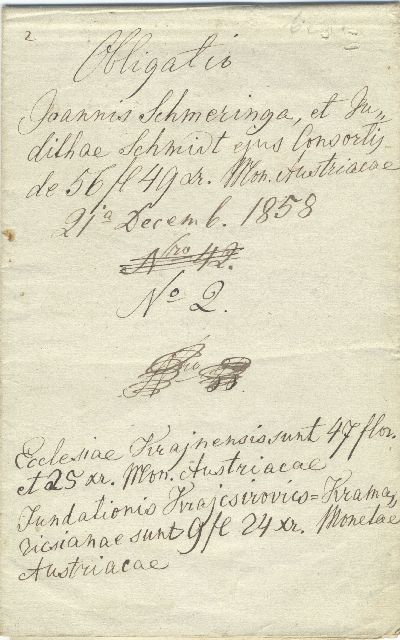 2
Obligatio
Joannis Schmeringa, et Ju„
dithae Schmidt ejus Consortis
de 56 fl 49 xr. Mon. Austriacae
21a Decemb. 1858
Nro 42.
No 2.
Nro
Ecclesiae Krajnensis sunt 47 flor.
et 25 xr. Mon. Austriacae
Fundationis Krajcsirovics=Krama„
ricsianae sunt 9 fl 24 xr. Monetae
Austriacae